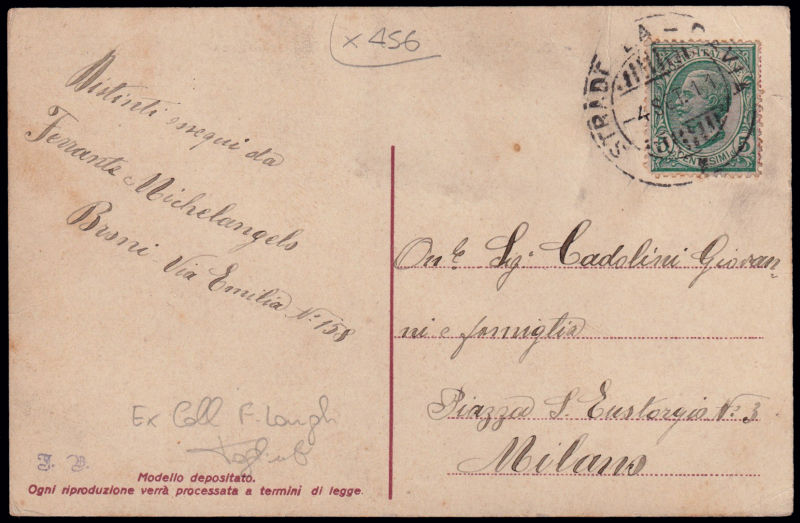 x 456
STRADELLA
CENTESIMI 5
Distinti ossequi da
Ferrante Michelangelo
Broni Via Emilia N.º 158
On.le Sig. Cadolini Giovan-
ni e famiglia
Piazza S. Eustorgio N.º 3
Milano
Ex Coll F. Longhi
Modello depositato.
Ogni riproduzione verrà processata a termini di legge.